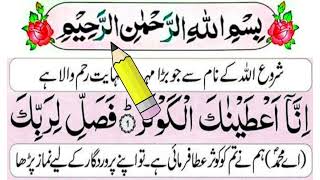 بِسْمِ اللّٰهِ الرَّحْمٰنِ الرَّحِيْمِ
شروع اللہ کے نام سے جو بڑا نہایت رحم والا ہے
اِنَّاۤ اَعْطَيْنٰكَ الْكَوْثَرَ ۱ فَصَلِّ لِرَبِّكَ
(اے محمدؐ) ہم نے تم کو کوثر عطا فرمائی ہے۔ تو اپنے پروردگار کے لیے نماز پڑھا